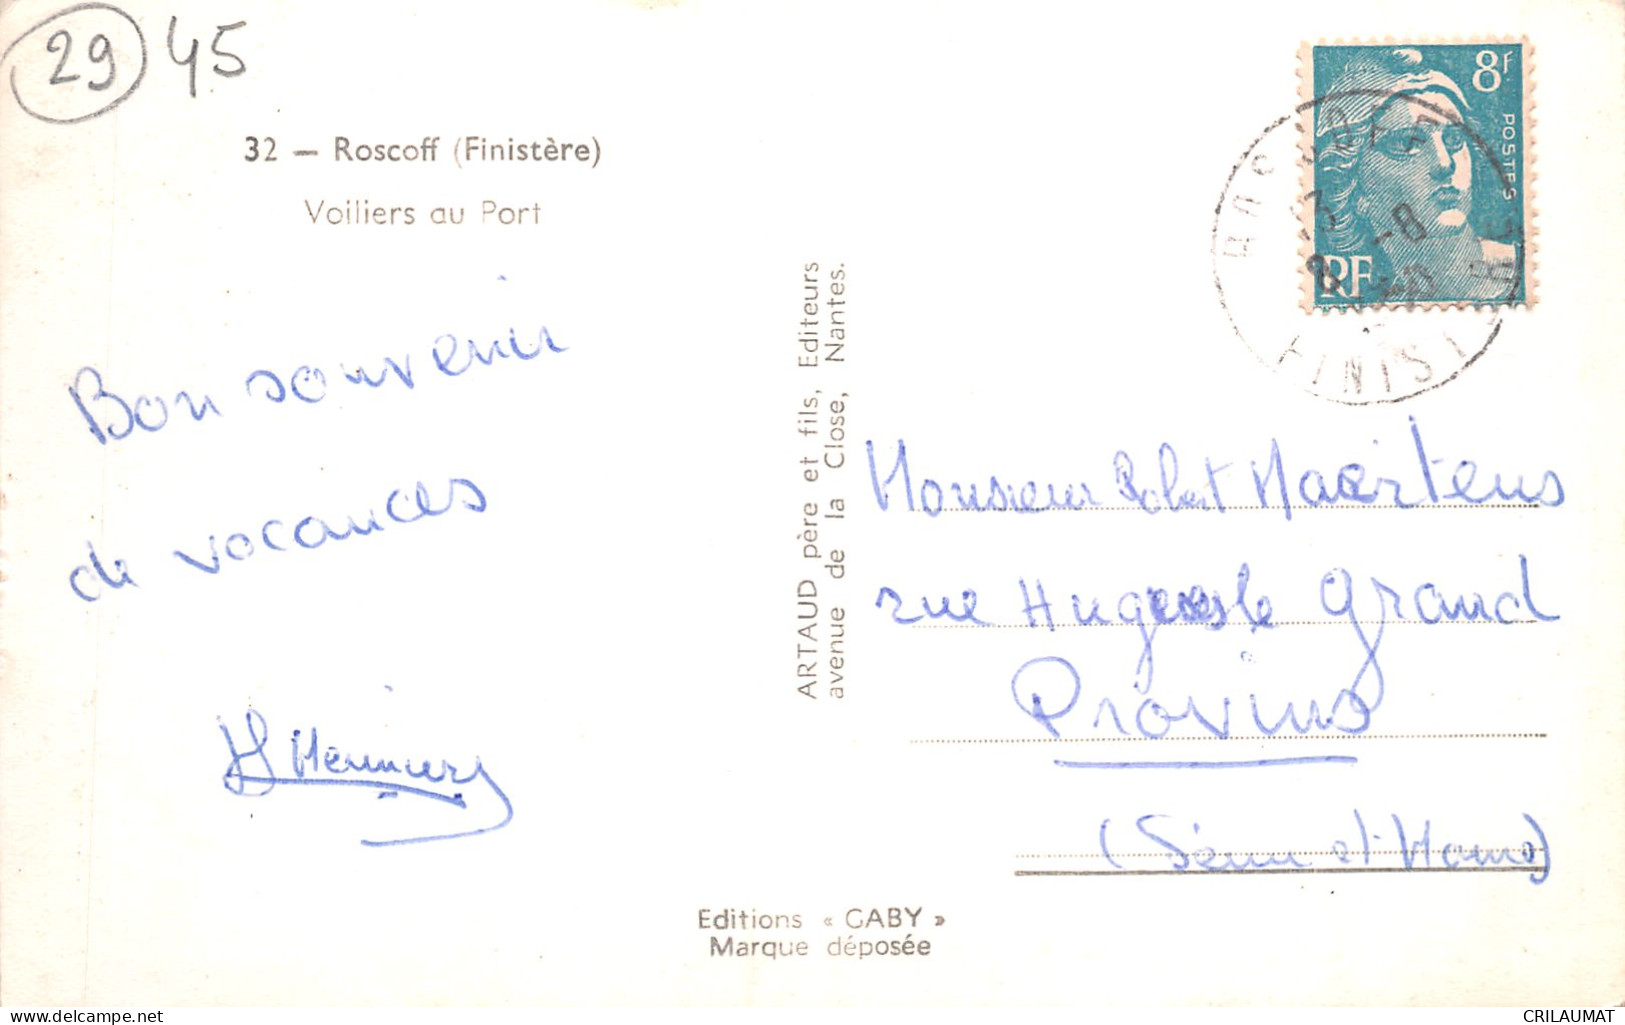 29 45
32 — Roscoff (Finistère)
Voiliers au Port
Bon souvenir
de vacances
ARTAUD père et fils, Editeurs
avenue de la Close, Nantes.
8F
POSTES
RF
ROSCOFF
13 -8
FINIST
Monsieur Robert Maertens
rue Hugues le Grand
Provins
(Seine et Marne)
Editions « GABY »
Marque déposée
www.delcampe.net
CRILAUMAT